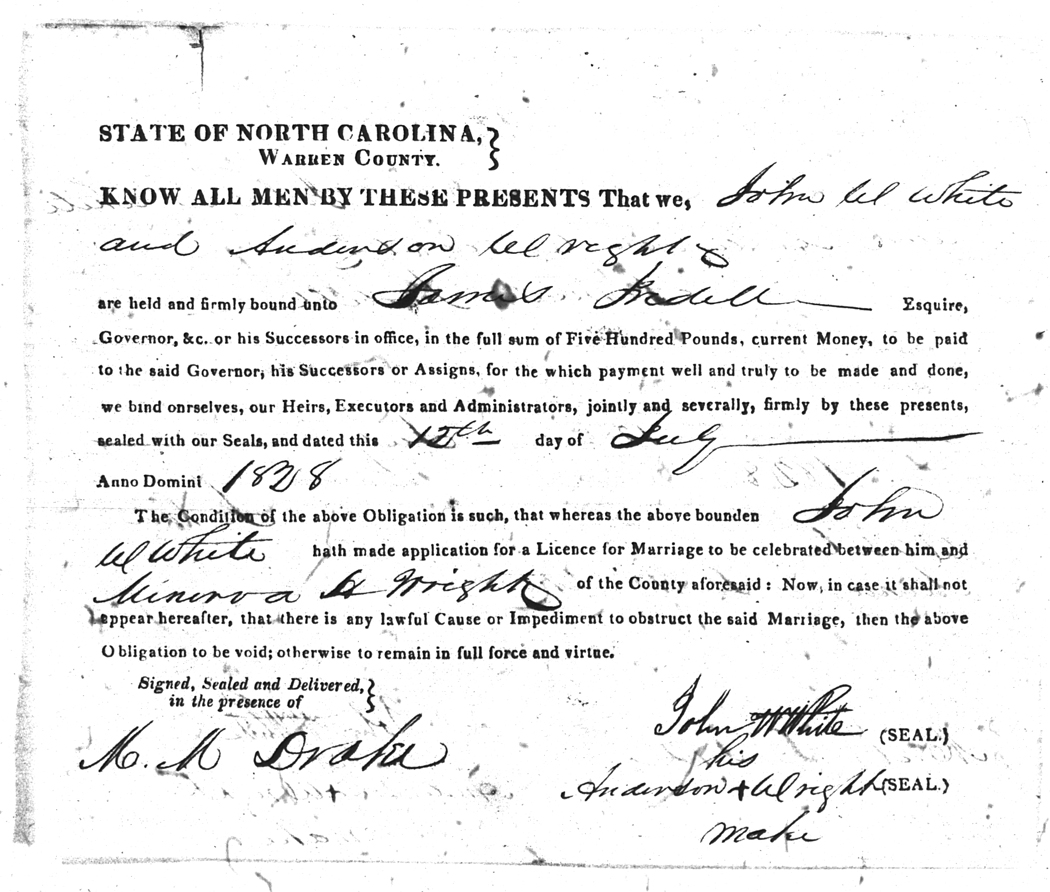 STATE OF NORTH CAROLINA,
WARREN COUNTY.
KNOW ALL MEN BY THESE PRESENTS That we, John W White
and Anderson Wright
are held and firmly bound unto James Iredell Esquire,
Governor, &c. or his Successors in office, in the full sum of Five Hundred Pounds, current Money, to be paid
to the said Governor, his Successors or Assigns, for the which payment well and truly to be made and done,
we bind onrselves, our Heirs, Executors and Administrators, jointly and severally, firmly by these presents,
sealed with our Seals, and dated this 12th day of July
Anno Domini 1828
The Condition of the above Obligation is such, that whereas the above bounden John
W White hath made application for a Licence for Marriage to be celebrated between him and
Minerva Wright of the County aforesaid: Now, in case it shall not
appear hereafter, that there is any lawful Cause or Impediment to obstruct the said Marriage, then the above
Obligation to be void; otherwise to remain in full force and virtue.
Signed, Sealed and Delivered,
in the presence of
John W White (SEAL.)
M. M Drake
his
Anderson + Wright (SEAL.)
make